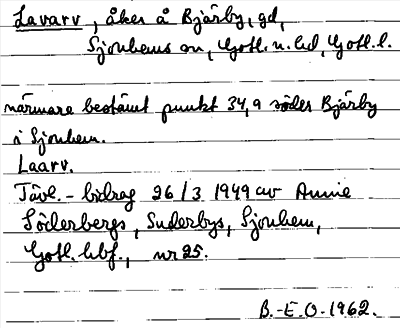 Lavarv, åker å Bjärby, gd,
Sjonhems sn, Gotl. n. hd, Gotl. l.
närmare bestämt punkt 34,9 söder Bjärby
i Sjonhem.
Laarv.
Tävl.-bidrag 26/3 1949 av Annie
Söderbergs, Suderbys, Sjonhem,
Gotl. hbf., nr 25.
B.-E.O. 1962.